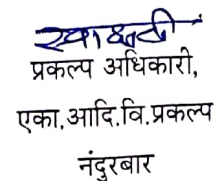 स्वाक्षरी
प्रकल्प अधिकारी,
एका.आदि.वि.प्रकल्प
नंदुरबार